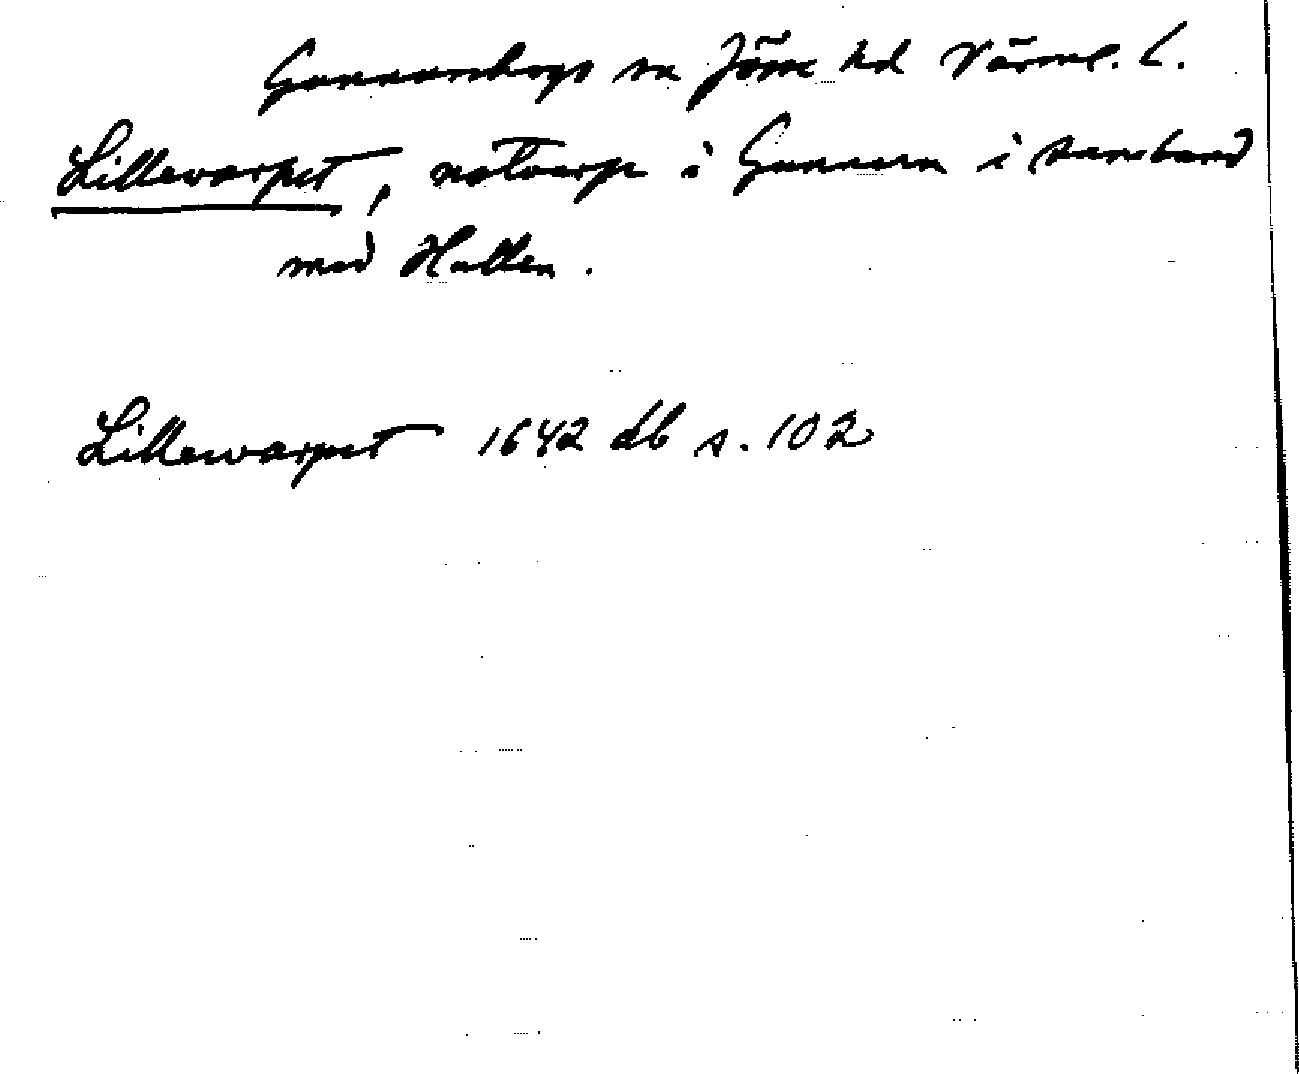 Gunnarskogs sn Jösse hd Värml. L.
Lillevarpet, notvarp i Gunnern i samband
med Hallen.
Lillewarpet 1642 db s. 102